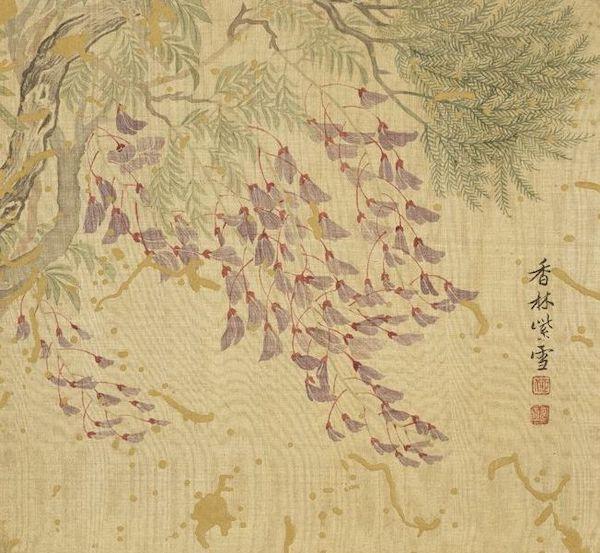 香林紫雪